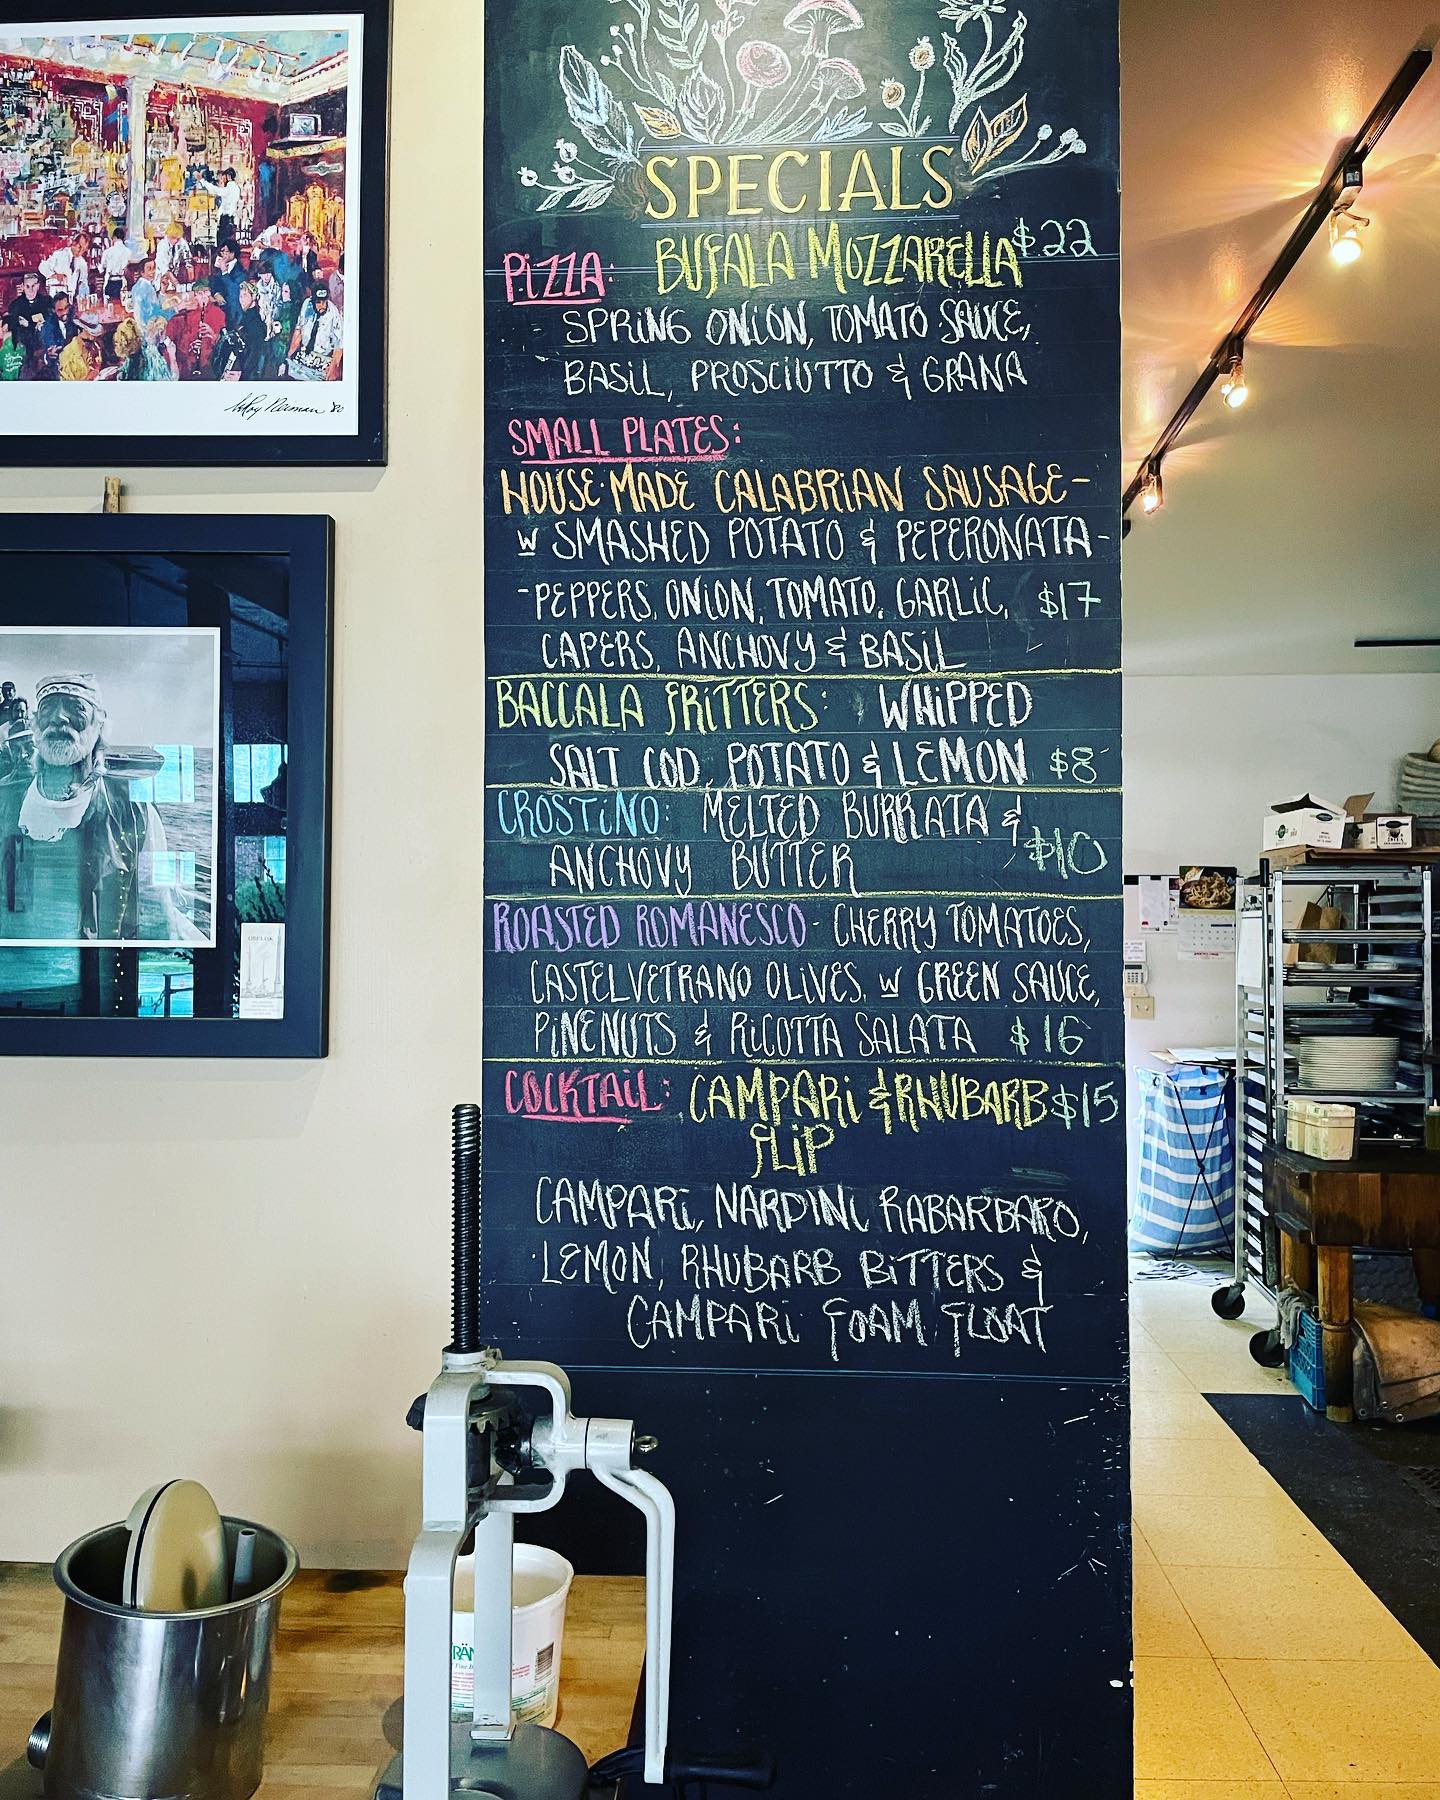 SPECIALS
PIZZA: BUFALA MOZZARELLA $22
SPRING ONION, TOMATO SAUCE,
BASIL, PROSCIUTTO & GRANA
SMALL PLATES:
HOUSE-MADE CALABRIAN SAUSAGE-
W SMASHED POTATO & PEPERONATA-
-PEPPERS, ONION, TOMATO, GARLIC, $17
CAPERS, ANCHOVY & BASIL
BACCALA FRITTERS: WHIPPED
SALT COD, POTATO & LEMON $8
CROSTINO: MELTED BURRATA &
ANCHOVY BUTTER $10
ROASTED ROMANESCO- CHERRY TOMATOES,
CASTELVETRANO OLIVES, W GREEN SAUCE,
PINENUTS & RICOTTA SALATA $16
COCKTAIL: CAMPARI & RHUBARB $15
FLIP
CAMPARI, NARDINI RABARBARO,
LEMON, RHUBARB BITTERS &
CAMPARI FOAM FLOAT
LeRoy Neiman '80